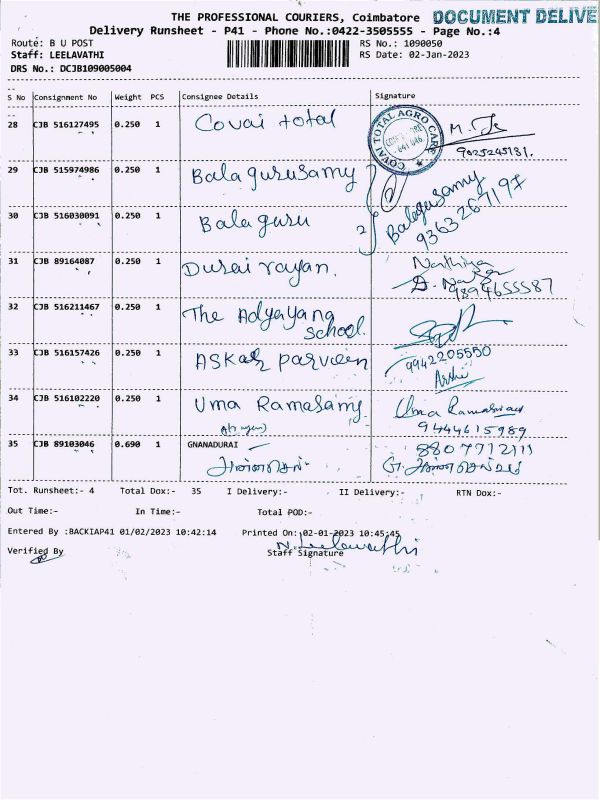 THE PROFESSIONAL COURIERS, Coimbatore DOCUMENT DELIVE
Delivery Runsheet - P41 - Phone No.:0422-3505555 - Page No.:4
Route: B U POST RS No.: 1090050
Staff: LEELAVATHI RS Date: 02-Jan-2023
DRS No.: DCJB109005004
S No Consignment No Weight PCS Consignee Details Signature
28 CJB 516127495 0.250 1 Covai total
COVAI TOTAL AGRO CARE
641 046
9025245131.
29 CJB 515974986 0.250 1 Balagurusamy
30 CJB 516030091 0.250 1 Balaguru 2 Balagusamy
9363267197
31 CJB 89164087 0.250 1 Durai rayan. Nathiya
9894655587
32 CJB 516211467 0.250 1 The Adyayana
school.
33 CJB 516157426 0.250 1 ASKar parveen 9942205550
34 CJB 516102220 0.250 1 Uma Ramasamy Uma Ramasamy
9444615989
35 CJB 89103046 0.690 1 GNANADURAI 8807712111
Tot. Runsheet:- 4 Total Dox:- 35 I Delivery:- II Delivery:- RTN Dox:-
Out Time:- In Time:- Total POD:-
Entered By :BACKIAP41 01/02/2023 10:42:14 Printed On: 02-01-2023 10:45:45
N. Leelavathi
Verified By Staff Signature